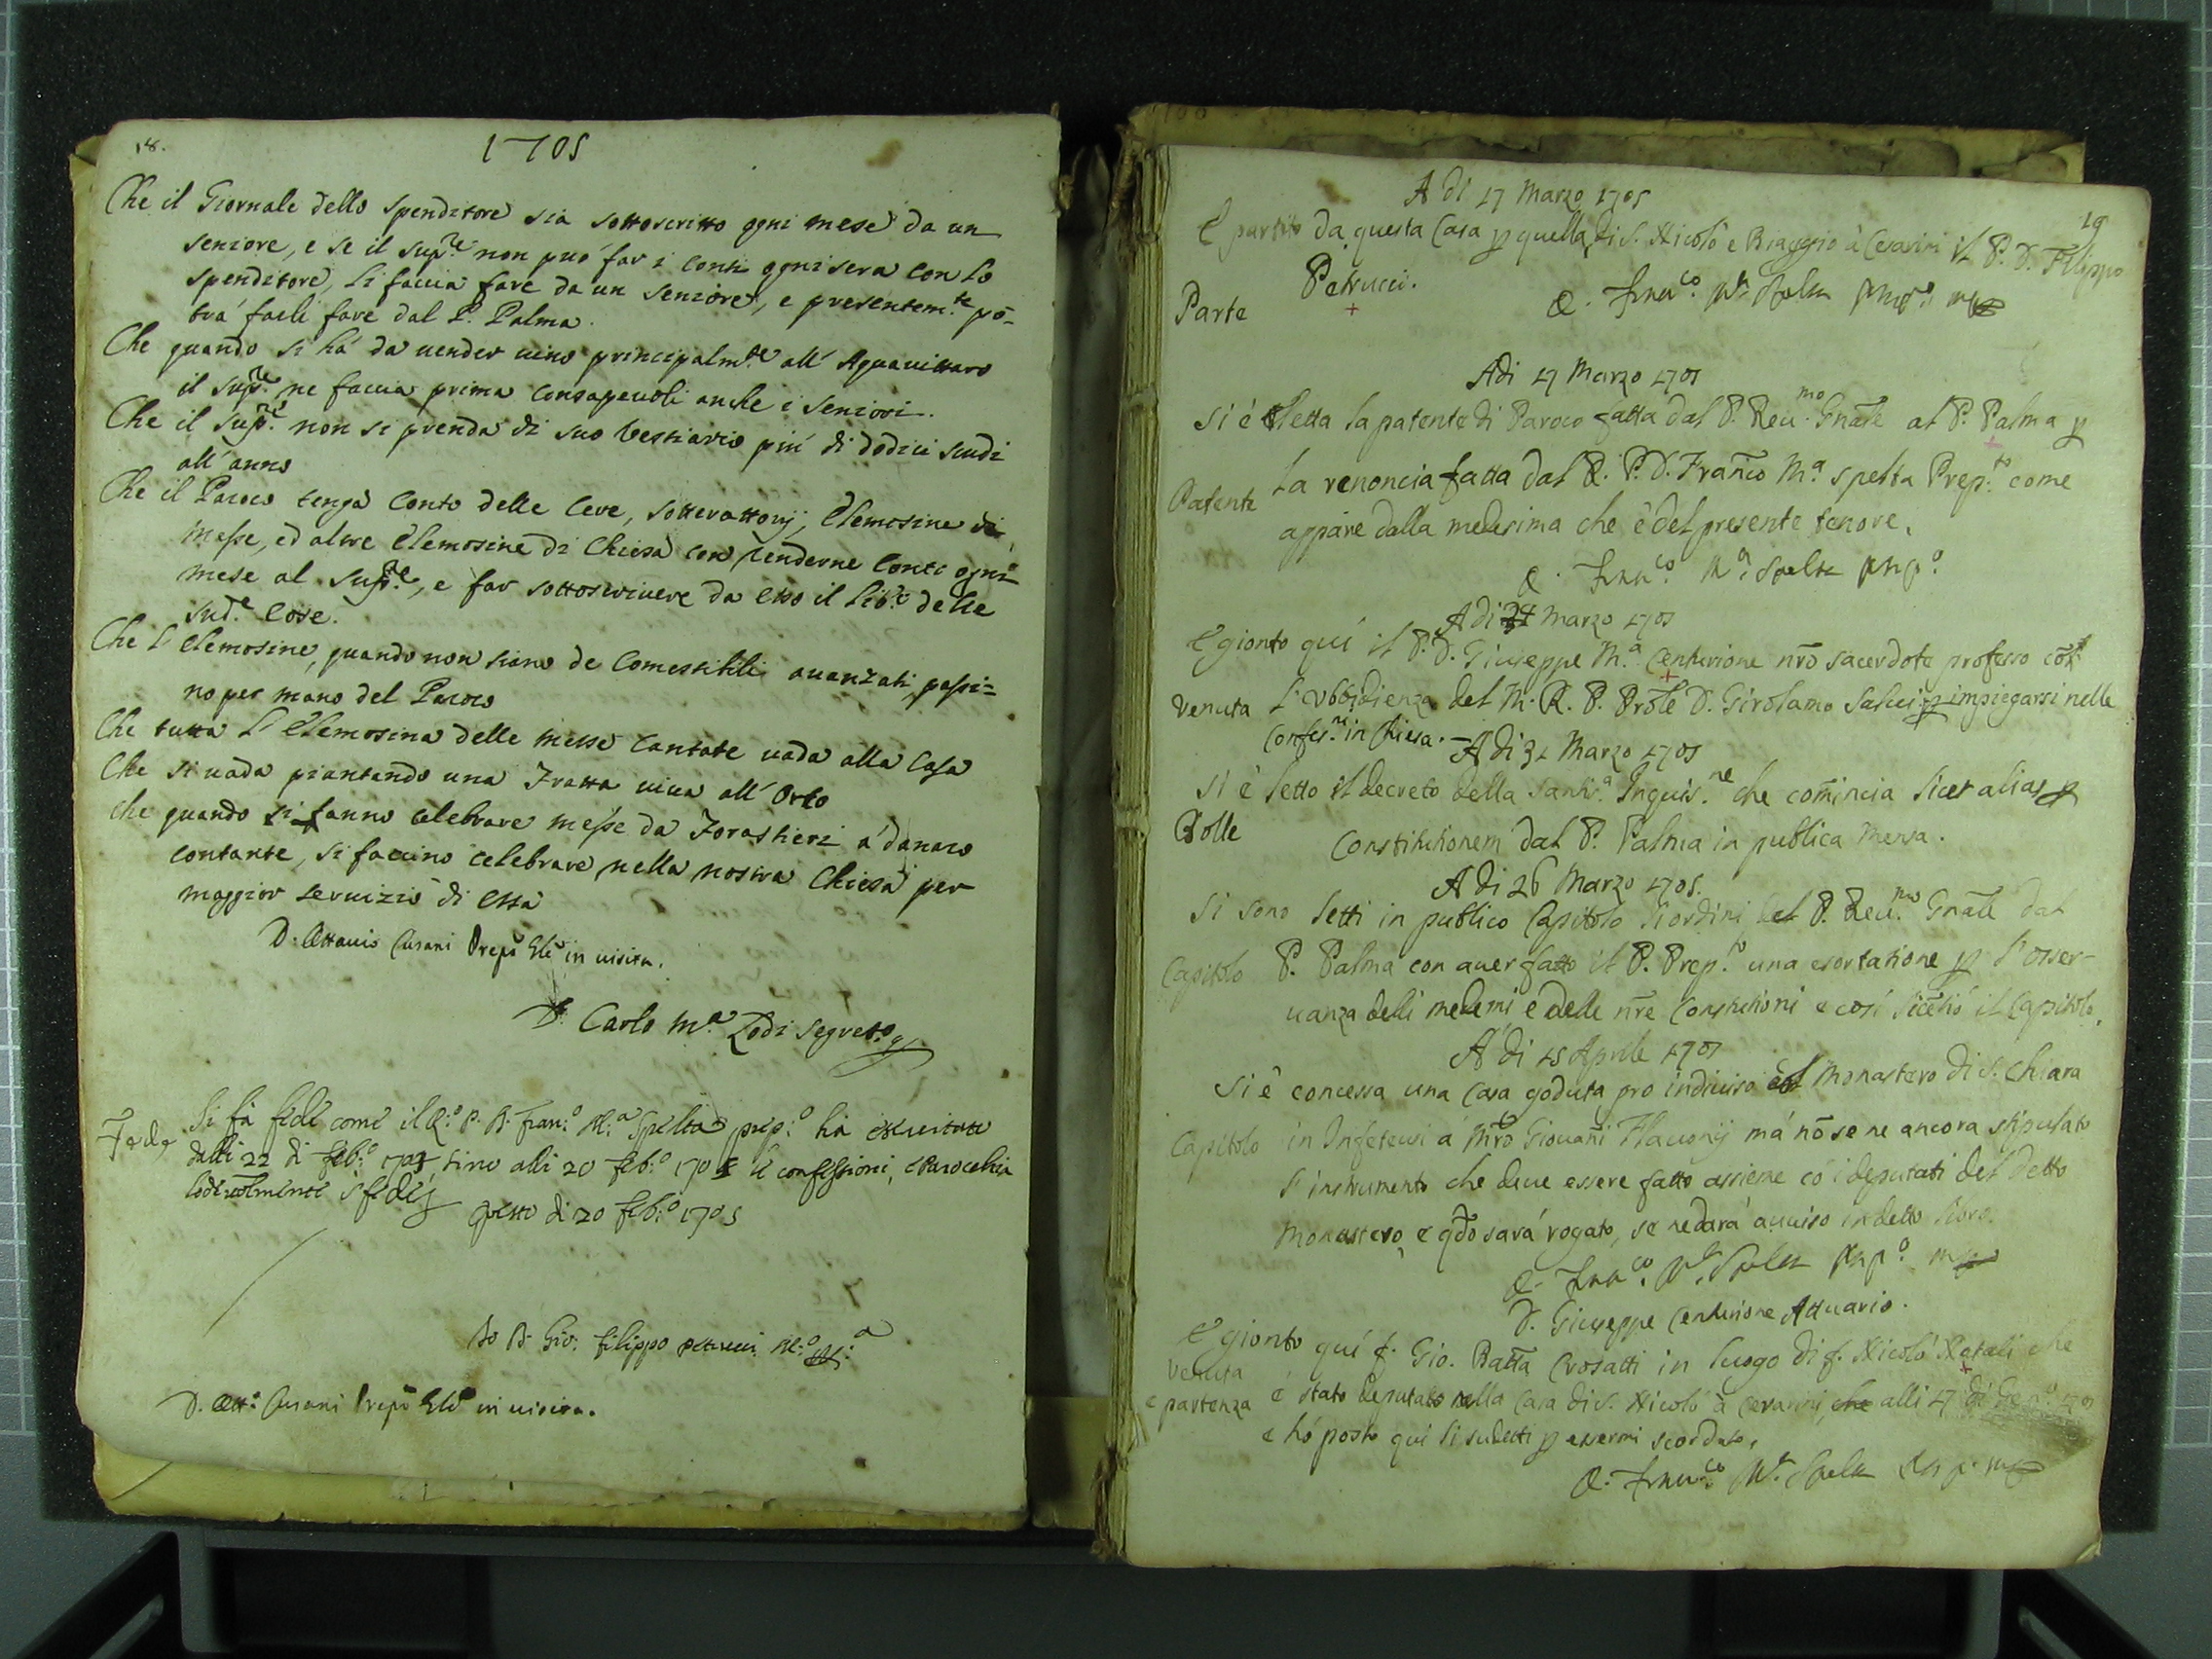 18.
1705
Che il Giornale dello Spenditore sia sottoscritto ogni mese da un
seniore, e se il Sup.re non può far i conti ogni sera con lo
spenditore, li faccia fare da un seniore, e presentem.te po-
trà farli fare dal P. Palma.
Che quando si hà da uender uino principalm.te all' Aquauittaro
il Sup.re ne faccia prima consapeuoli anche i seniori.
Che il Sup.re non si prenda di suo Vestiario più di dodici scudi
all' anno
Che il Paroco tenga Conto delle Cere, sotterattorij, Elemosine di
Messe, ed altre Elemosine di Chiesa con renderne Conto ogni
mese al Sup.re, e far sottoscriuere da esso il lib.o delle
Sud.e Cose.
Che l' elemosine, quando non siano de Comestibili auanzati passi=
no per mano del Paroco
Che tutta l' Elemosina delle messe Cantate uada alla Casa
Che si uada piantando una Fratta uiua all' Orto
Che quando si fanno celebrare messe da Forastieri a' danaro
contante, si faccino celebrare nella nostra Chiesa per
maggior seruizio di essa
D. Ottauio Cusani Prepo Gle in uisita.
D. Carlo M.a Lodi Segret.o
Fede
Si fà fede come il R.o P. D. Fran.o M.a Spelta prep.o hà esercitate
dalli 22 di feb.o 1704 sino alli 20 feb.o 1705 le confessioni, e Parocchia
lodeuolmente
questo di 20 feb.o 1705
Io D. Gio: Filippo Petrucci
D. Ott.o Cusani Prepo Gle in uisita.
19
A di 17 Marzo 1705
È partito da questa Casa p quella di S. Nicolò e Biaggio à Cesarini il P. D. Filippo
Parte
Petrucci.
D. Franc.co M.a Spelta Prep.o
Adi 17 Marzo 1705
Si è letta la patente di Paroco fatta dal P. Reu.mo Gnale al P. Palma p
Patente
la renoncia fatta dal R. P. D. Franco M.a Spelta Prep.to come
appare dalla medesima che è del presente tenore.
D. Franc.co M.a Spelta Prep.o
A di 24 Marzo 1705
È gionto quì il P. D. Giuseppe M.a Centurione nro sacerdote professo con
Venuta
l' Vbbidienza del M. R. P. Prole D. Girolamo Saluij p impiegarsi nelle
Confes.ni in Chiesa. - A di 31 Marzo 1705
Si è letto il decreto della Santis.a Inquis.ne che comincia licet alias p
Bolle
Constitutionem dal P. Palma in publica Mensa.
A di 26 Marzo 1705.
Si sono letti in publico Capitolo li ordini del P. Reu.mo Gnale dal
Capitolo
P. Palma con auer fatto il P. Prep.to una esortatione p l' osser-
uanza delli medemi e delle nre Constitutioni e così licentiò il Capitolo.
A di 15 Aprile 1705
Si è concessa una Casa goduta pro indiuiso col Monastero di S. Chiara
Capitolo
in Infeteusi á Mro Giouani Flauonij má nõ se ne ancora stipulato
l' instrumento che deue essere fatto assieme cõ i deputati del detto
Monastero, e qdo sarà rogato, se ne darà auuiso in detto libro.
D. Franc.co M.a Spelta Prep.o
D. Giuseppe Centurione Attuario.
È gionto quì f. Gio. Batta Crosatti in luogo di f. Nicolò Natali che
Venuta
e partenza
è stato deputato nella Casa di S. Nicolò à Cesarini, che alli 17 di Gen.o 1705
e hó posto qui li sudetti p essermi scordato.
D. Franc.co M.a Spelta Prep.o